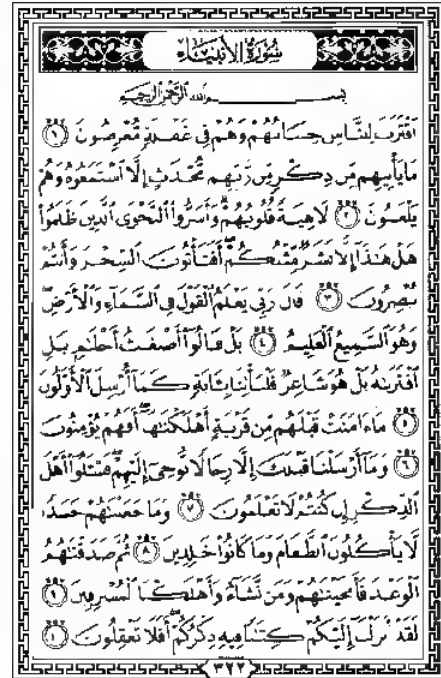 سُورَةُ الأَنبِيَاءِ
بِسْمِ اللَّهِ الرَّحْمَٰنِ الرَّحِيمِ
ٱقْتَرَبَ لِلنَّاسِ حِسَابُهُمْ وَهُمْ فِى غَفْلَةٍ مُّعْرِضُونَ ١
مَا يَأْتِيهِم مِّن ذِكْرٍ مِّن رَّبِّهِم مُّحْدَثٍ إِلَّا ٱسْتَمَعُوهُ وَهُمْ
يَلْعَبُونَ ٢ لَاهِيَةً قُلُوبُهُمْ وَأَسَرُّوا۟ ٱلنَّجْوَى ٱلَّذِينَ ظَلَمُوا۟
هَلْ هَٰذَآ إِلَّا بَشَرٌ مِّثْلُكُمْ أَفَتَأْتُونَ ٱلسِّحْرَ وَأَنتُمْ
تُبْصِرُونَ ٣ قَالَ رَبِّى يَعْلَمُ ٱلْقَوْلَ فِى ٱلسَّمَآءِ وَٱلْأَرْضِ
وَهُوَ ٱلسَّمِيعُ ٱلْعَلِيمُ ٤ بَلْ قَالُوٓا۟ أَضْغَٰثُ أَحْلَٰمٍ بَلِ
ٱفْتَرَىٰهُ بَلْ هُوَ شَاعِرٌ فَلْيَأْتِنَا بِـَٔايَةٍ كَمَآ أُرْسِلَ ٱلْأَوَّلُونَ
٥ مَآ ءَامَنَتْ قَبْلَهُم مِّن قَرْيَةٍ أَهْلَكْنَٰهَآ أَفَهُمْ يُؤْمِنُونَ
٦ وَمَآ أَرْسَلْنَا قَبْلَكَ إِلَّا رِجَالًا نُّوحِىٓ إِلَيْهِمْ فَسْـَٔلُوٓا۟ أَهْلَ
ٱلذِّكْرِ إِن كُنتُمْ لَا تَعْلَمُونَ ٧ وَمَا جَعَلْنَٰهُمْ جَسَدًا
لَّا يَأْكُلُونَ ٱلطَّعَامَ وَمَا كَانُوا۟ خَٰلِدِينَ ٨ ثُمَّ صَدَقْنَٰهُمُ
ٱلْوَعْدَ فَأَنجَيْنَٰهُمْ وَمَن نَّشَآءُ وَأَهْلَكْنَا ٱلْمُسْرِفِينَ ٩
لَقَدْ أَنزَلْنَآ إِلَيْكُمْ كِتَٰبًا فِيهِ ذِكْرُكُمْ أَفَلَا تَعْقِلُونَ ١٠
٣٢٢